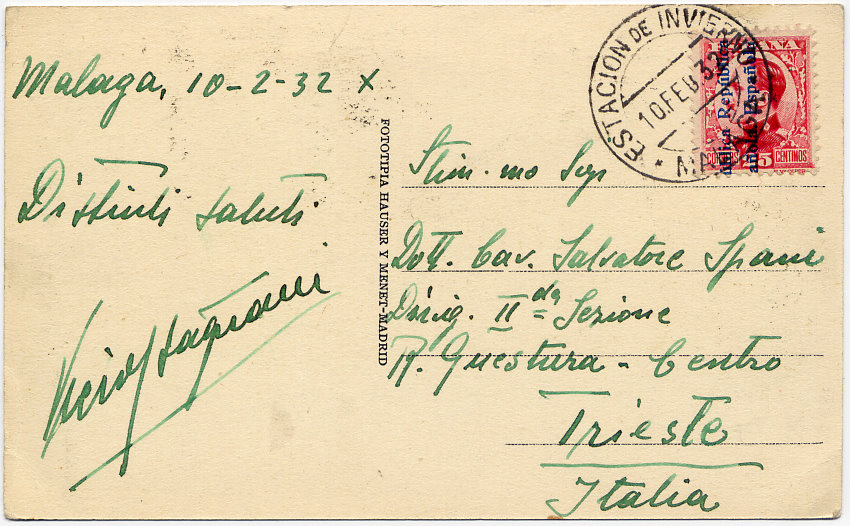 Malaga, 10-2-32 X
Distinti saluti
FOTOTIPIA HAUSER Y MENET-MADRID
ESTACION DE INVIERNO
10.FEB.32
* MALAGA *
República
Española
CENTIMOS
Stim.mo Sig
Dott. Cav. Salvatore Spani
Dirig. II da Sezione
R. Questura - Centro
Trieste
Italia